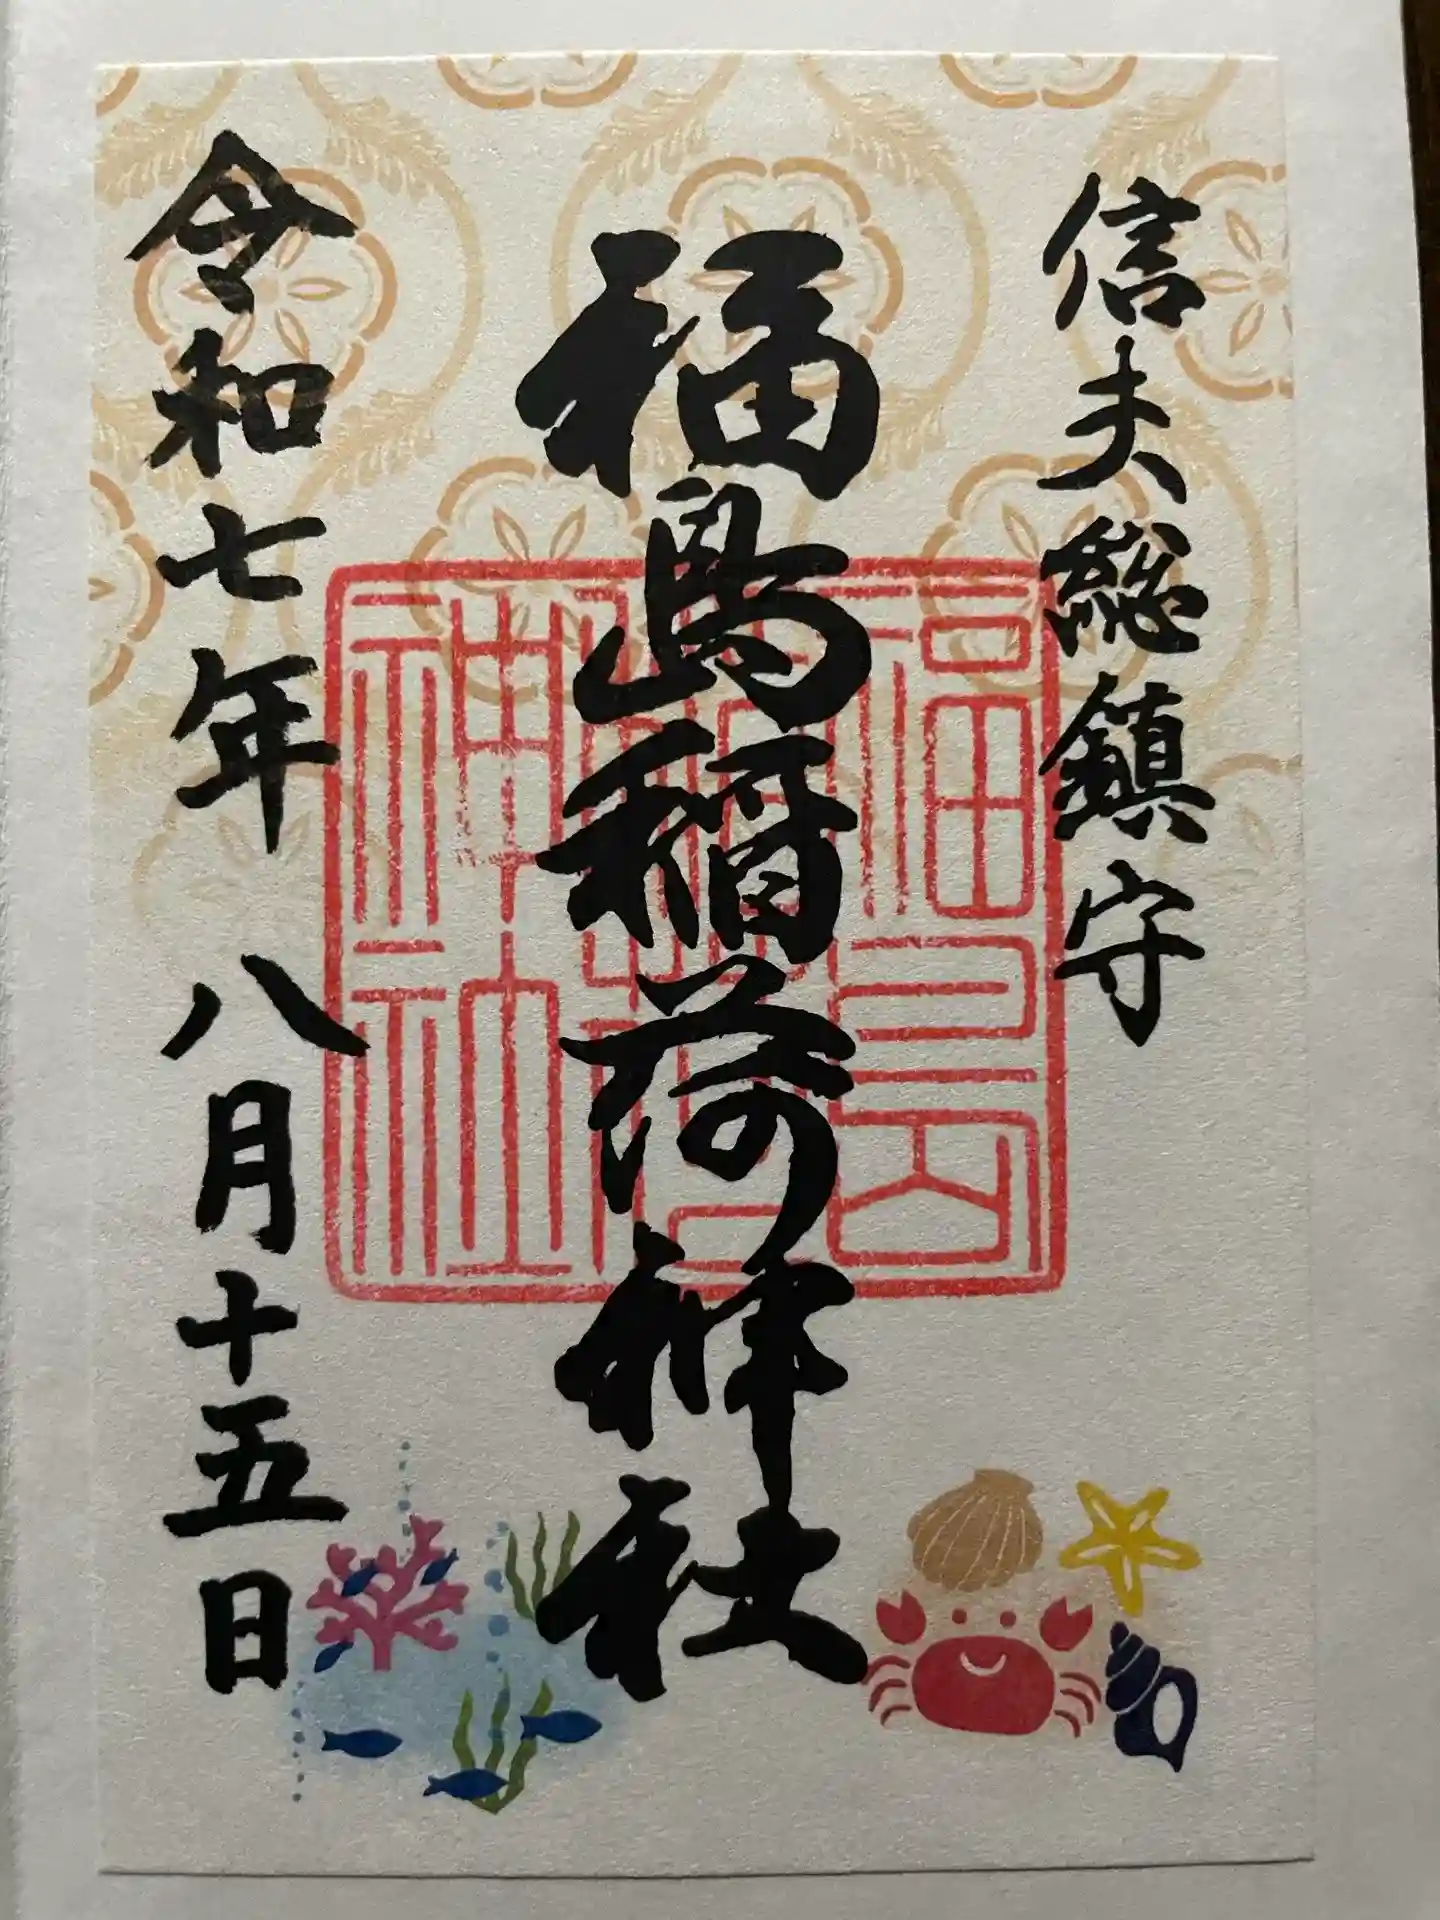 信夫総鎮守
福島稲荷神社
福島
稲荷
神社
令和七年八月十五日